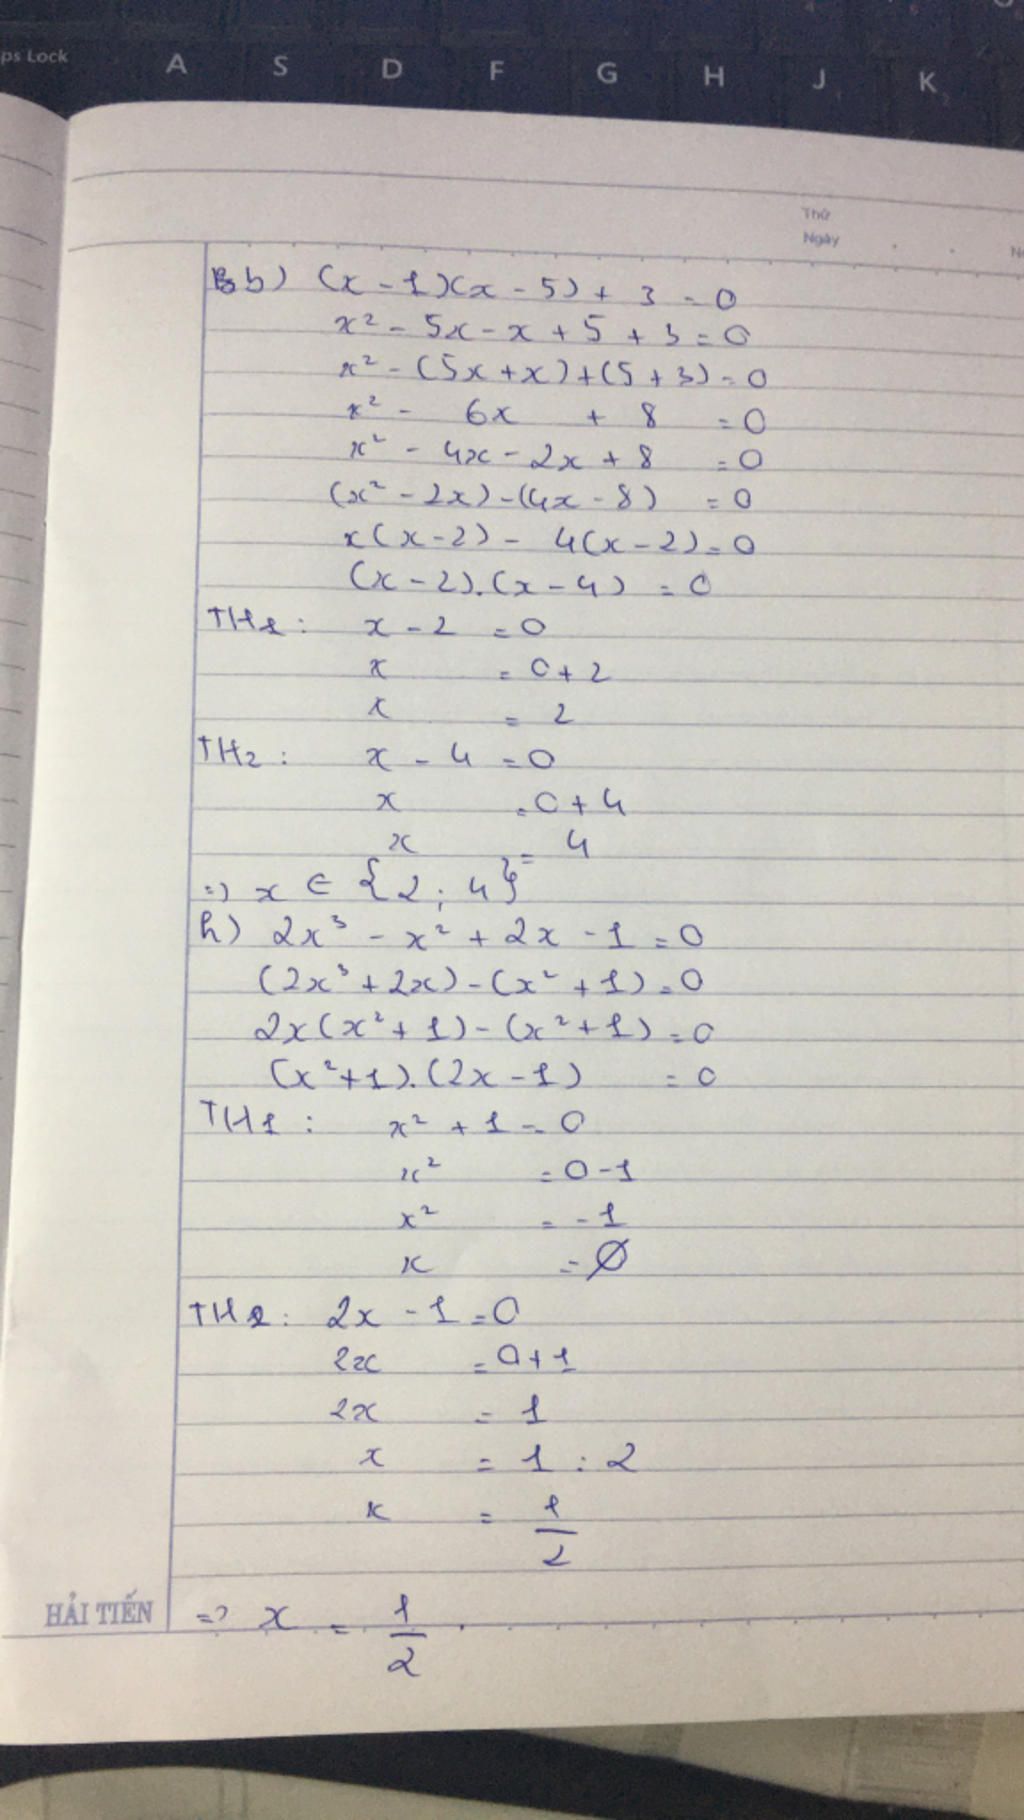 ps Lock
A S D F G H J K
Thứ
Ngày
b) (x - 1)(x - 5) + 3 = 0
x² - 5x - x + 5 + 3 = 0
x² - (5x + x) + (5 + 3) = 0
x² - 6x + 8 = 0
x² - 4x - 2x + 8 = 0
(x² - 2x) - (4x - 8) = 0
x(x - 2) - 4(x - 2) = 0
(x - 2).(x - 4) = 0
TH1: x - 2 = 0
x = 0 + 2
x = 2
TH2: x - 4 = 0
x = 0 + 4
x = 4
=> x ∈ {2; 4}
h) 2x³ - x² + 2x - 1 = 0
(2x³ + 2x) - (x² + 1) = 0
2x(x² + 1) - (x² + 1) = 0
(x² + 1).(2x - 1) = 0
TH1: x² + 1 = 0
x² = 0 - 1
x² = -1
x = ∅
TH2: 2x - 1 = 0
2x = 0 + 1
2x = 1
x = 1 : 2
x = 1/2
HẢI TIẾN
=> x = 1/2